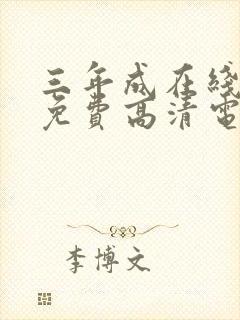 三年成在綫
免費高清電
李博文